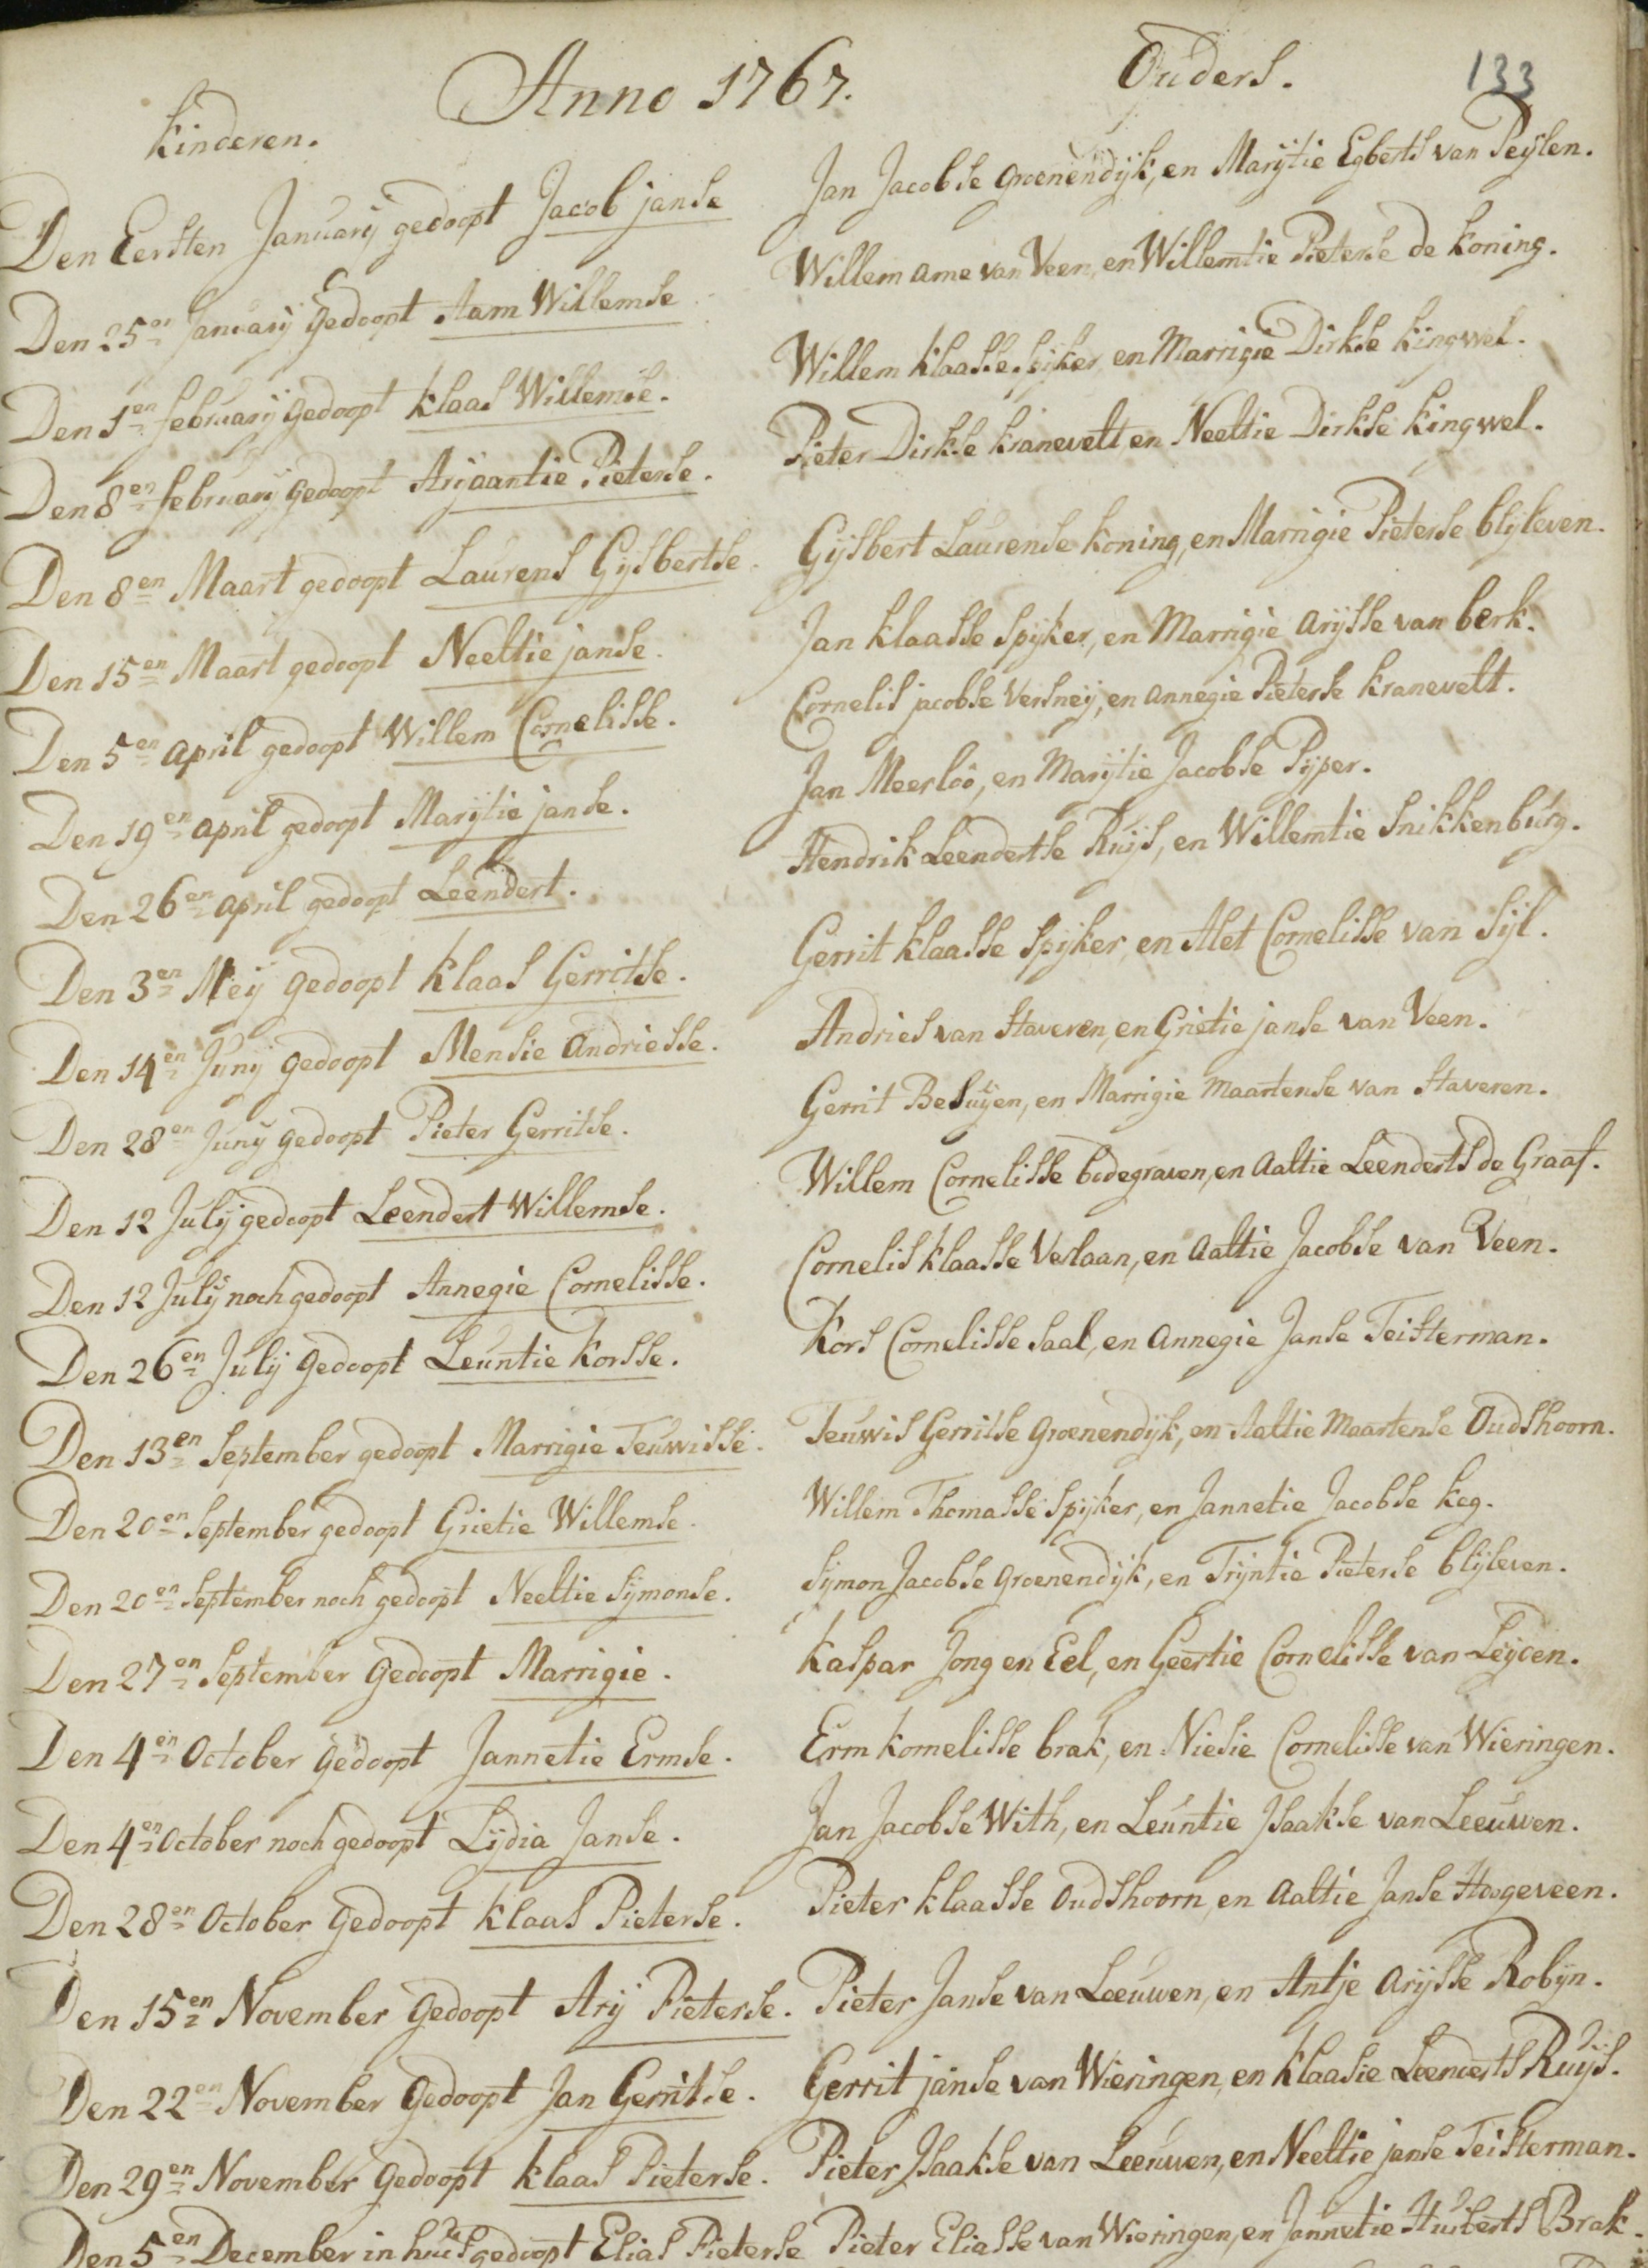 Anno 1767.
Ouders.
133
Kinderen.
Den Eersten Januarij gedoopt Jacob janse
Jan Jacobse Groenendijk, en Marijtie Egberts van Peijlen.
Den 25en Januarij Gedoopt Aam Willemse
Willem ame van Veen, en Willemtie Pieterse de Koning.
Den 1en februarij Gedoopt Klaas Willemse.
Willem Klaasse Spijker en Marrigie Dirkse Kingwel.
Den 8en februarij Gedoopt Arijaantie Pieterse.
Pieter Dirkse Kranevelt en Neeltie Dirkse Kingwel.
Den 8en Maart gedoopt Laurens Gijsbertse.
Gijsbert Laurense Koning, en Marrigie Pieterse blijleven.
Den 15en Maart gedoopt Neeltie janse.
Jan Klaasse Spijker, en Marrigie Arijsse van berk.
Den 5en april gedoopt Willem Cornelisse.
Cornelis jacobse Versneij, en Annegie Pieterse Kranevelt.
Den 19en april gedoopt Marijtie janse.
Jan Meerloo, en Marijtie Jacobse Pijper.
Den 26en april gedoopt Leendert.
Hendrik Leendertse Ruijs, en Willemtie Snikkenburg.
Den 3en Meij Gedoopt Klaas Gerritse.
Gerrit Klaasse Spijker, en Alet Cornelisse van Sijl.
Den 14en Junij Gedoopt Mensie Andriesse.
Andries van Staveren, en Grietie janse van Veen.
Den 28en Junij Gedoopt Pieter Gerritse.
Gerrit Besuijen, en Marrigie Maartense van Staveren.
Den 12 Julij gedoopt Leendert Willemse.
Willem Cornelisse bodegraven, en Aaltie Leenderts de Graaf.
Den 12 Julij noch gedoopt Annegie Cornelisse.
Cornelis Klaasse Verlaan, en Aaltie Jacobse van Veen.
Den 26en Julij Gedoopt Leuntie Korsse.
Kors Cornelisse Saal, en Annegie Janse Teisterman.
Den 13en September gedoopt Marrigie Teuwisse.
Teuwis Gerritse Groenendijk, en Aaltie Maartense Oudshoorn.
Den 20en September gedoopt Grietie Willemse.
Willem Thomasse Spijker, en Jannetie Jacobse Keg.
Den 20en September noch gedoopt Neeltie Sijmonse.
Sijmon Jacobse Groenendijk, en Trijntie Pieterse blijleven.
Den 27en September Gedoopt Marrigie.
Kaspar Jong en Eel, en Geertie Cornelisse van Leijden.
Den 4en October Gedoopt Jannetie Ermse.
Erm Kornelisse brak, en Niesie Cornelisse van Wieringen.
Den 4en October noch gedoopt Lijdia Janse.
Jan Jacobse With, en Leuntie Isaakse van Leeuwen.
Den 28en October Gedoopt Klaas Pieterse.
Pieter Klaasse Oudshoorn, en Aaltie Janse Hoogeveen.
Den 15en November Gedoopt Arij Pieterse.
Pieter Janse van Leeuwen, en Antje Arijsse Robijn.
Den 22en November Gedoopt Jan Gerritse.
Gerrit janse van Wieringen, en Klaasie Leenderts Ruijs.
Den 29en November Gedoopt Klaas Pieterse.
Pieter Isaakse van Leeuwen, en Neeltie janse Teisterman.
Den 5en December in huis gedoopt Elias Pieterse
Pieter Eliasse van Wieringen, en Jannetie Huiberts Brak.